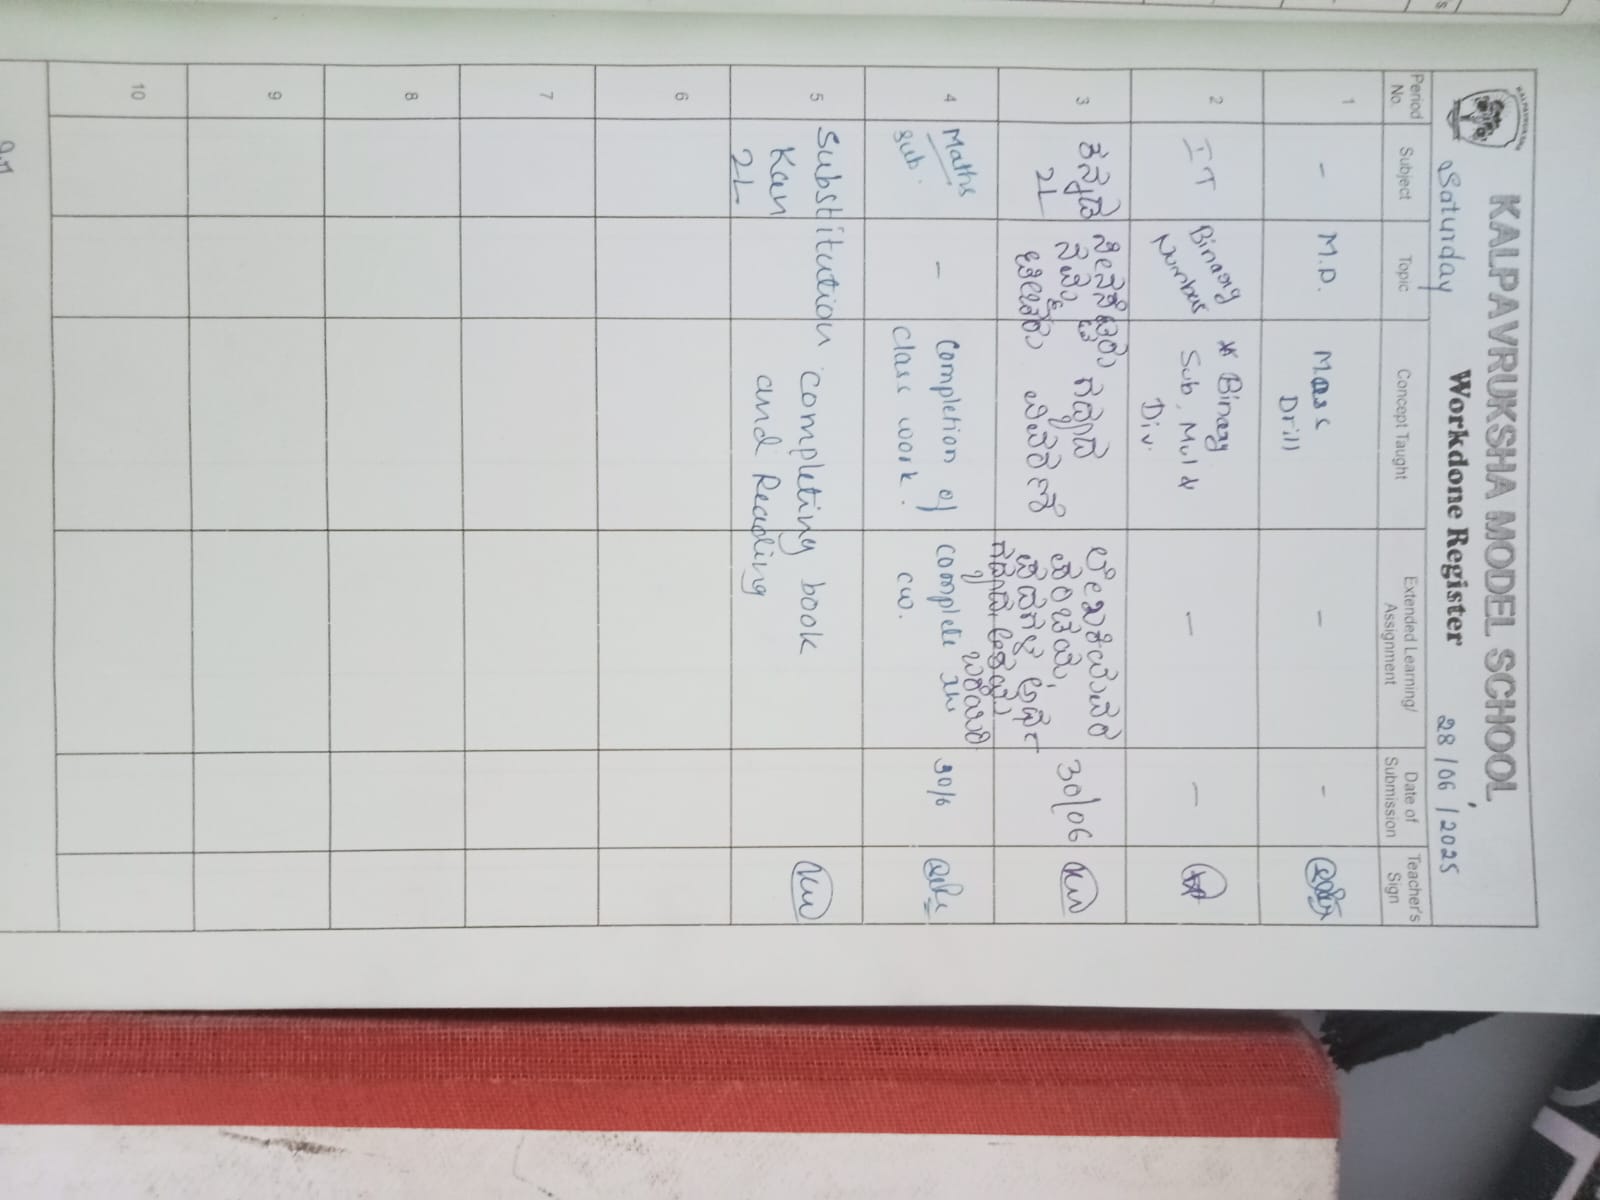 KALPAVRUKSHA MODEL SCHOOL
Workdone Register
Saturday 28/06/2025
Period No. Subject Topic Concept Taught Extended Learning/ Assignment Date of Submission Teacher's Sign
1 - M.P. Mass Drill - -
2 IT Binary Numbers * Binary Sub, Mul & Div. - -
3 ಕನ್ನಡ 2L ಗದ್ಯದ ವಿವರಣೆ 30/06
4 Maths sub. - Completion of class work. complete the cw. 30/6
5 Substitution completing book
Kan and Reading
2L
6
7
8
9
10